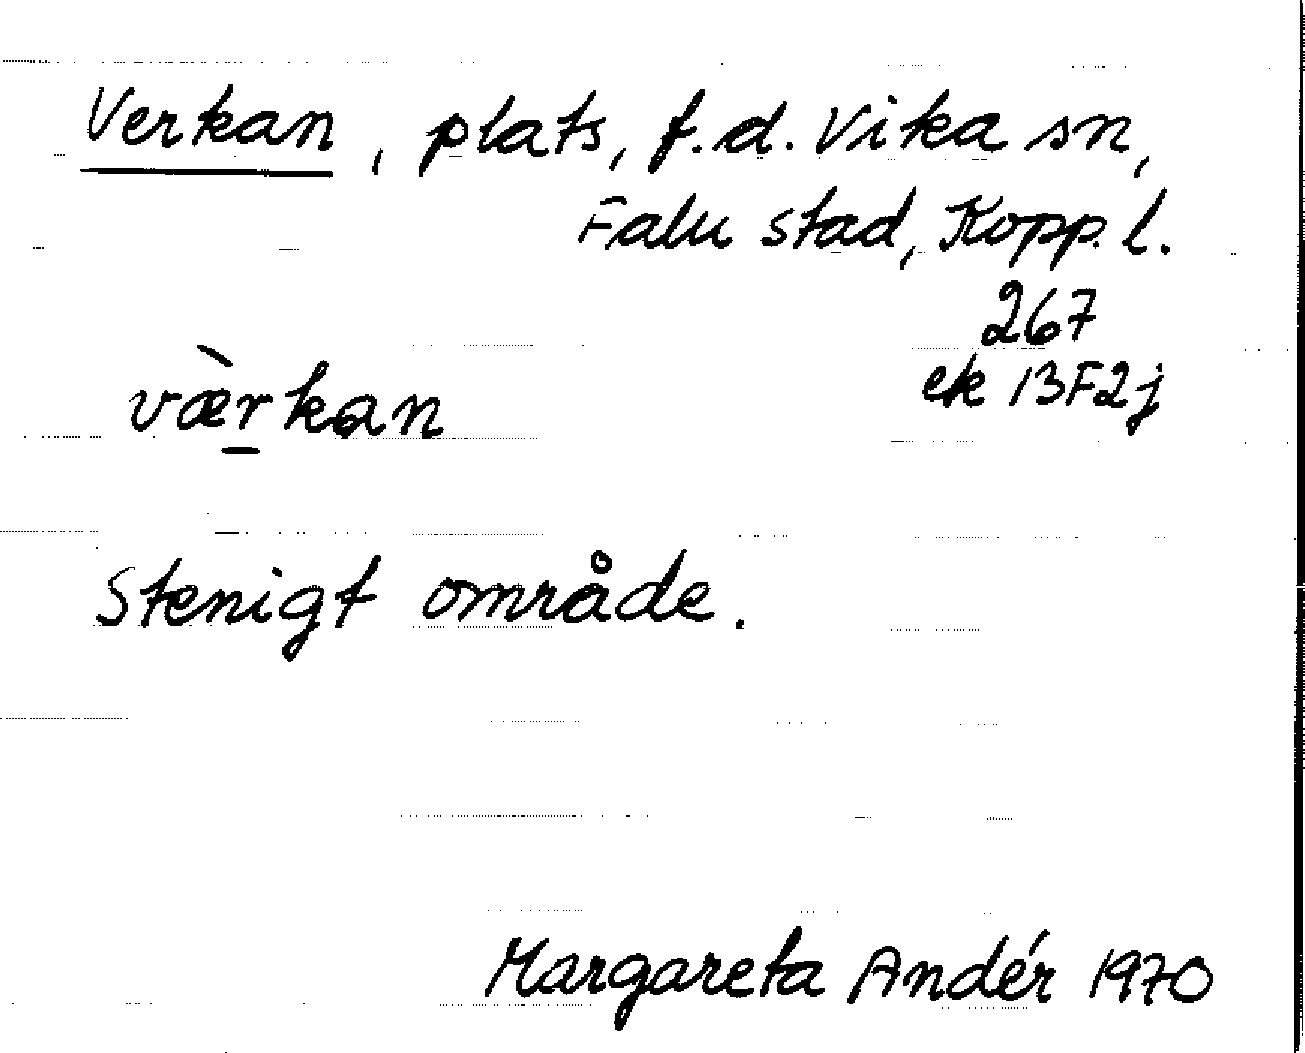 Verkan, plats, f.d. Vika sn,
Falu stad, Kopp. l.
267
ek 13F2j
væ̀r̠kan
Stenigt område.
Margareta Andér 1970